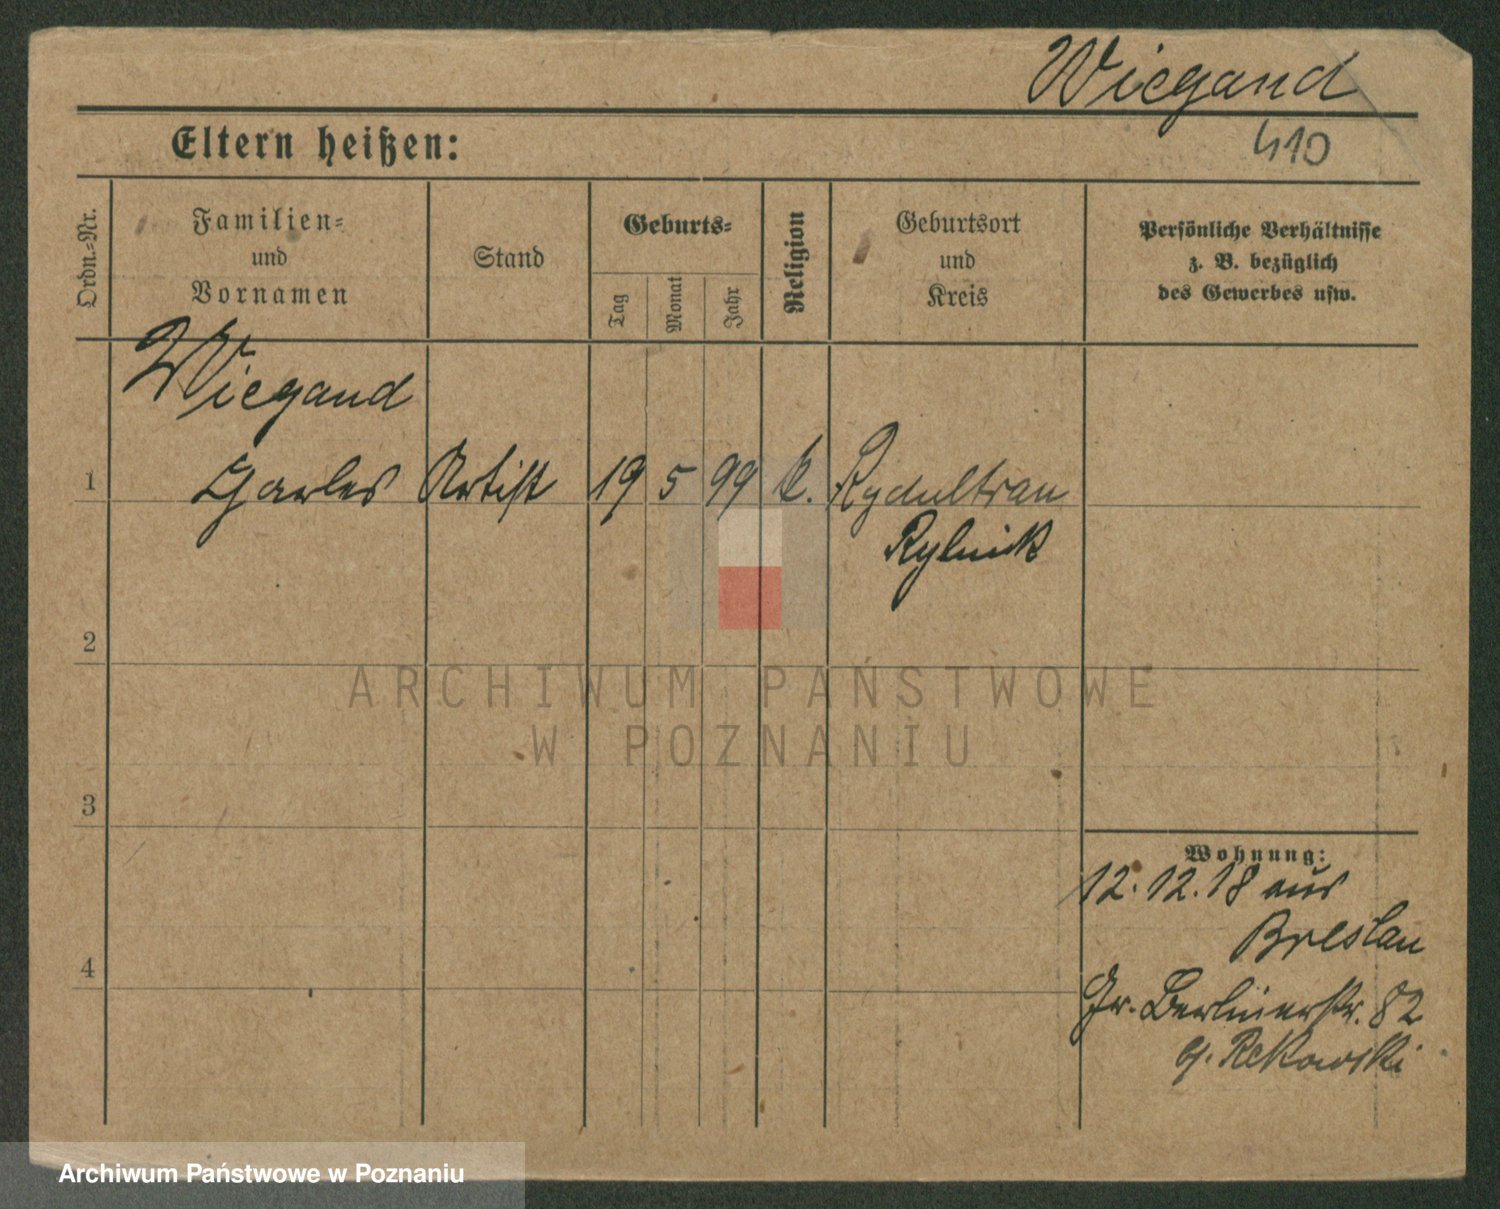 Wiegand
410
Eltern heißen:
Ordn.-Nr.
Familien-
und
Vornamen
Stand
Geburts-
Tag
Monat
Jahr
Religion
Geburtsort
und
Kreis
Persönliche Verhältnisse
z. B. bezüglich
des Gewerbes usw.
Wiegand
1 Charles Artist 19 5 99 k. Rydultrau
Rybnik
2
3
4
ARCHIWUM PAŃSTWOWE
W POZNANIU
Wohnung:
12.12.18 aus
Breslau
Gr. Berlinerstr. 82
Rekowski
Archiwum Państwowe w Poznaniu